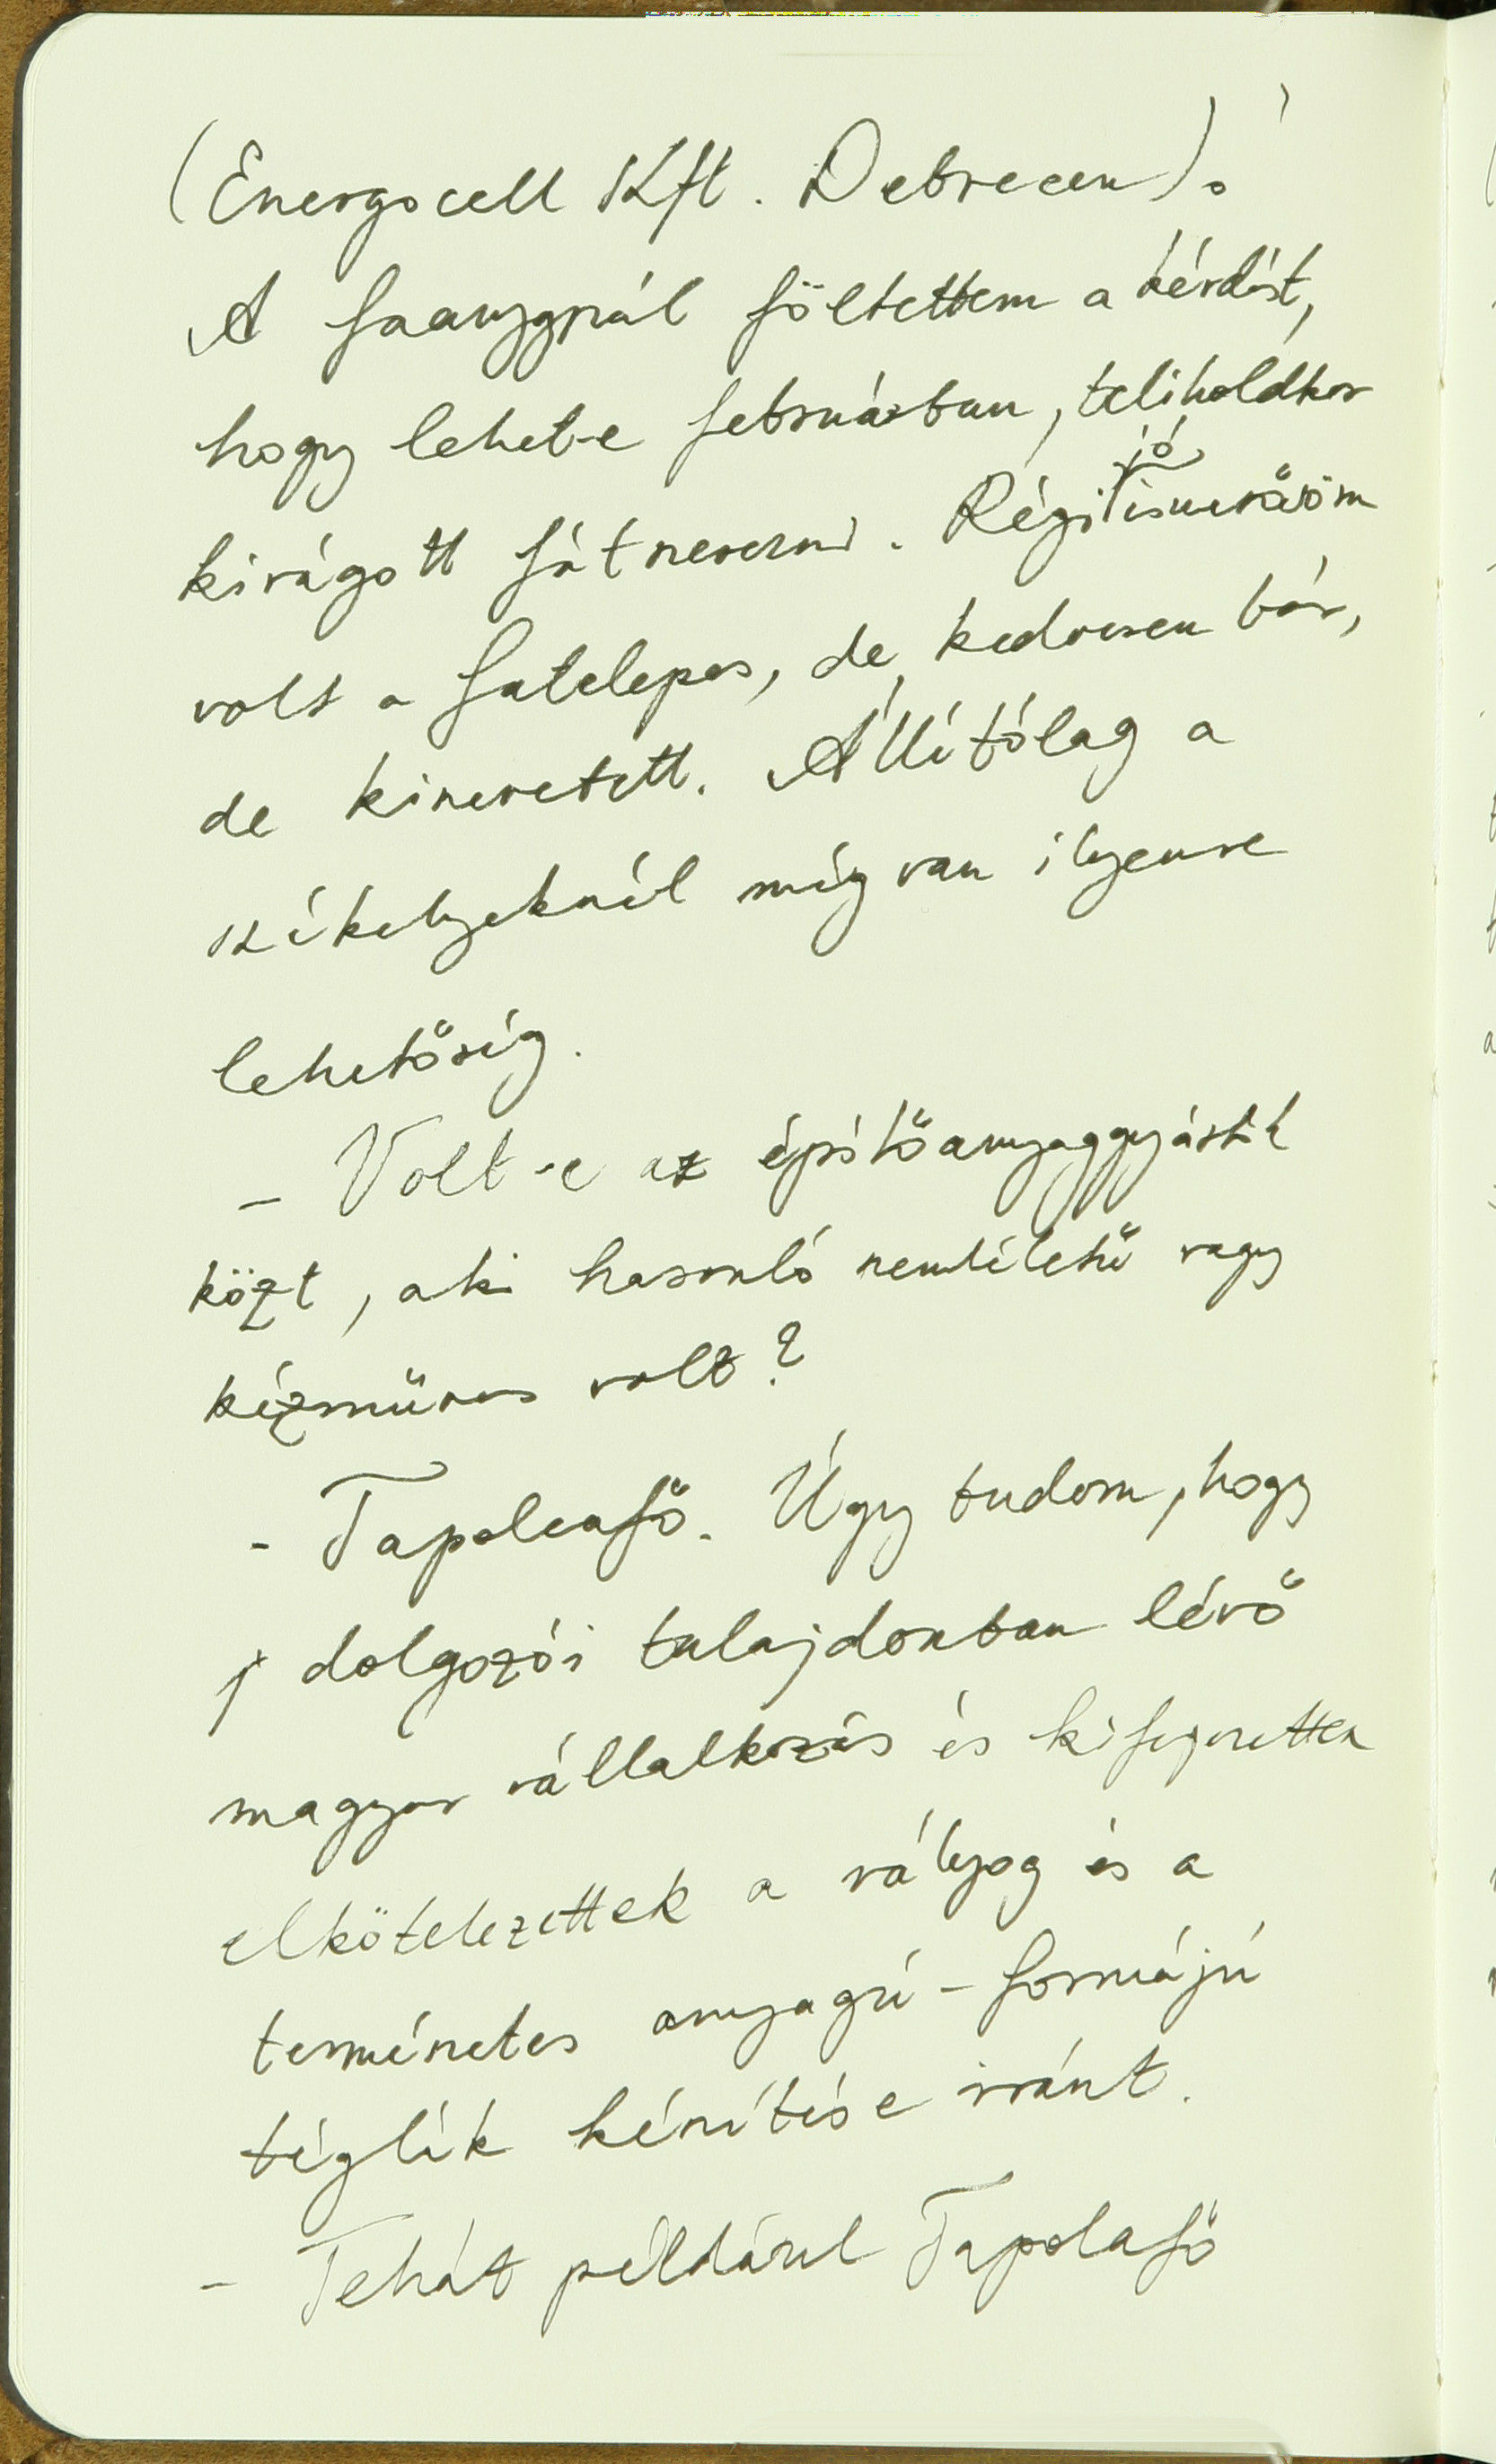 (Energocell Kft. Debrecen).
A faanyagnál föltettem a kérdést,
hogy lehet-e februárban, teliholdkor
jó
kivágott fát szerezni. Régi ismerősöm
volt a fatelepes, de kedvesen bár,
de kinevetett. Állítólag a
székelyeknél még van ilyenre
lehetőség.
– Volt-e az építőanyaggyártók
közt, aki hasonló szemléletű vagy
kézműves volt?
- Tapolcafő. Úgy tudom, hogy
dolgozói tulajdonban lévő
magyar vállalkozás és kifejezetten
elkötelezettek a vályog és a
természetes anyagú-formájú
téglák készítése iránt.
– Tehát például Tapolafő